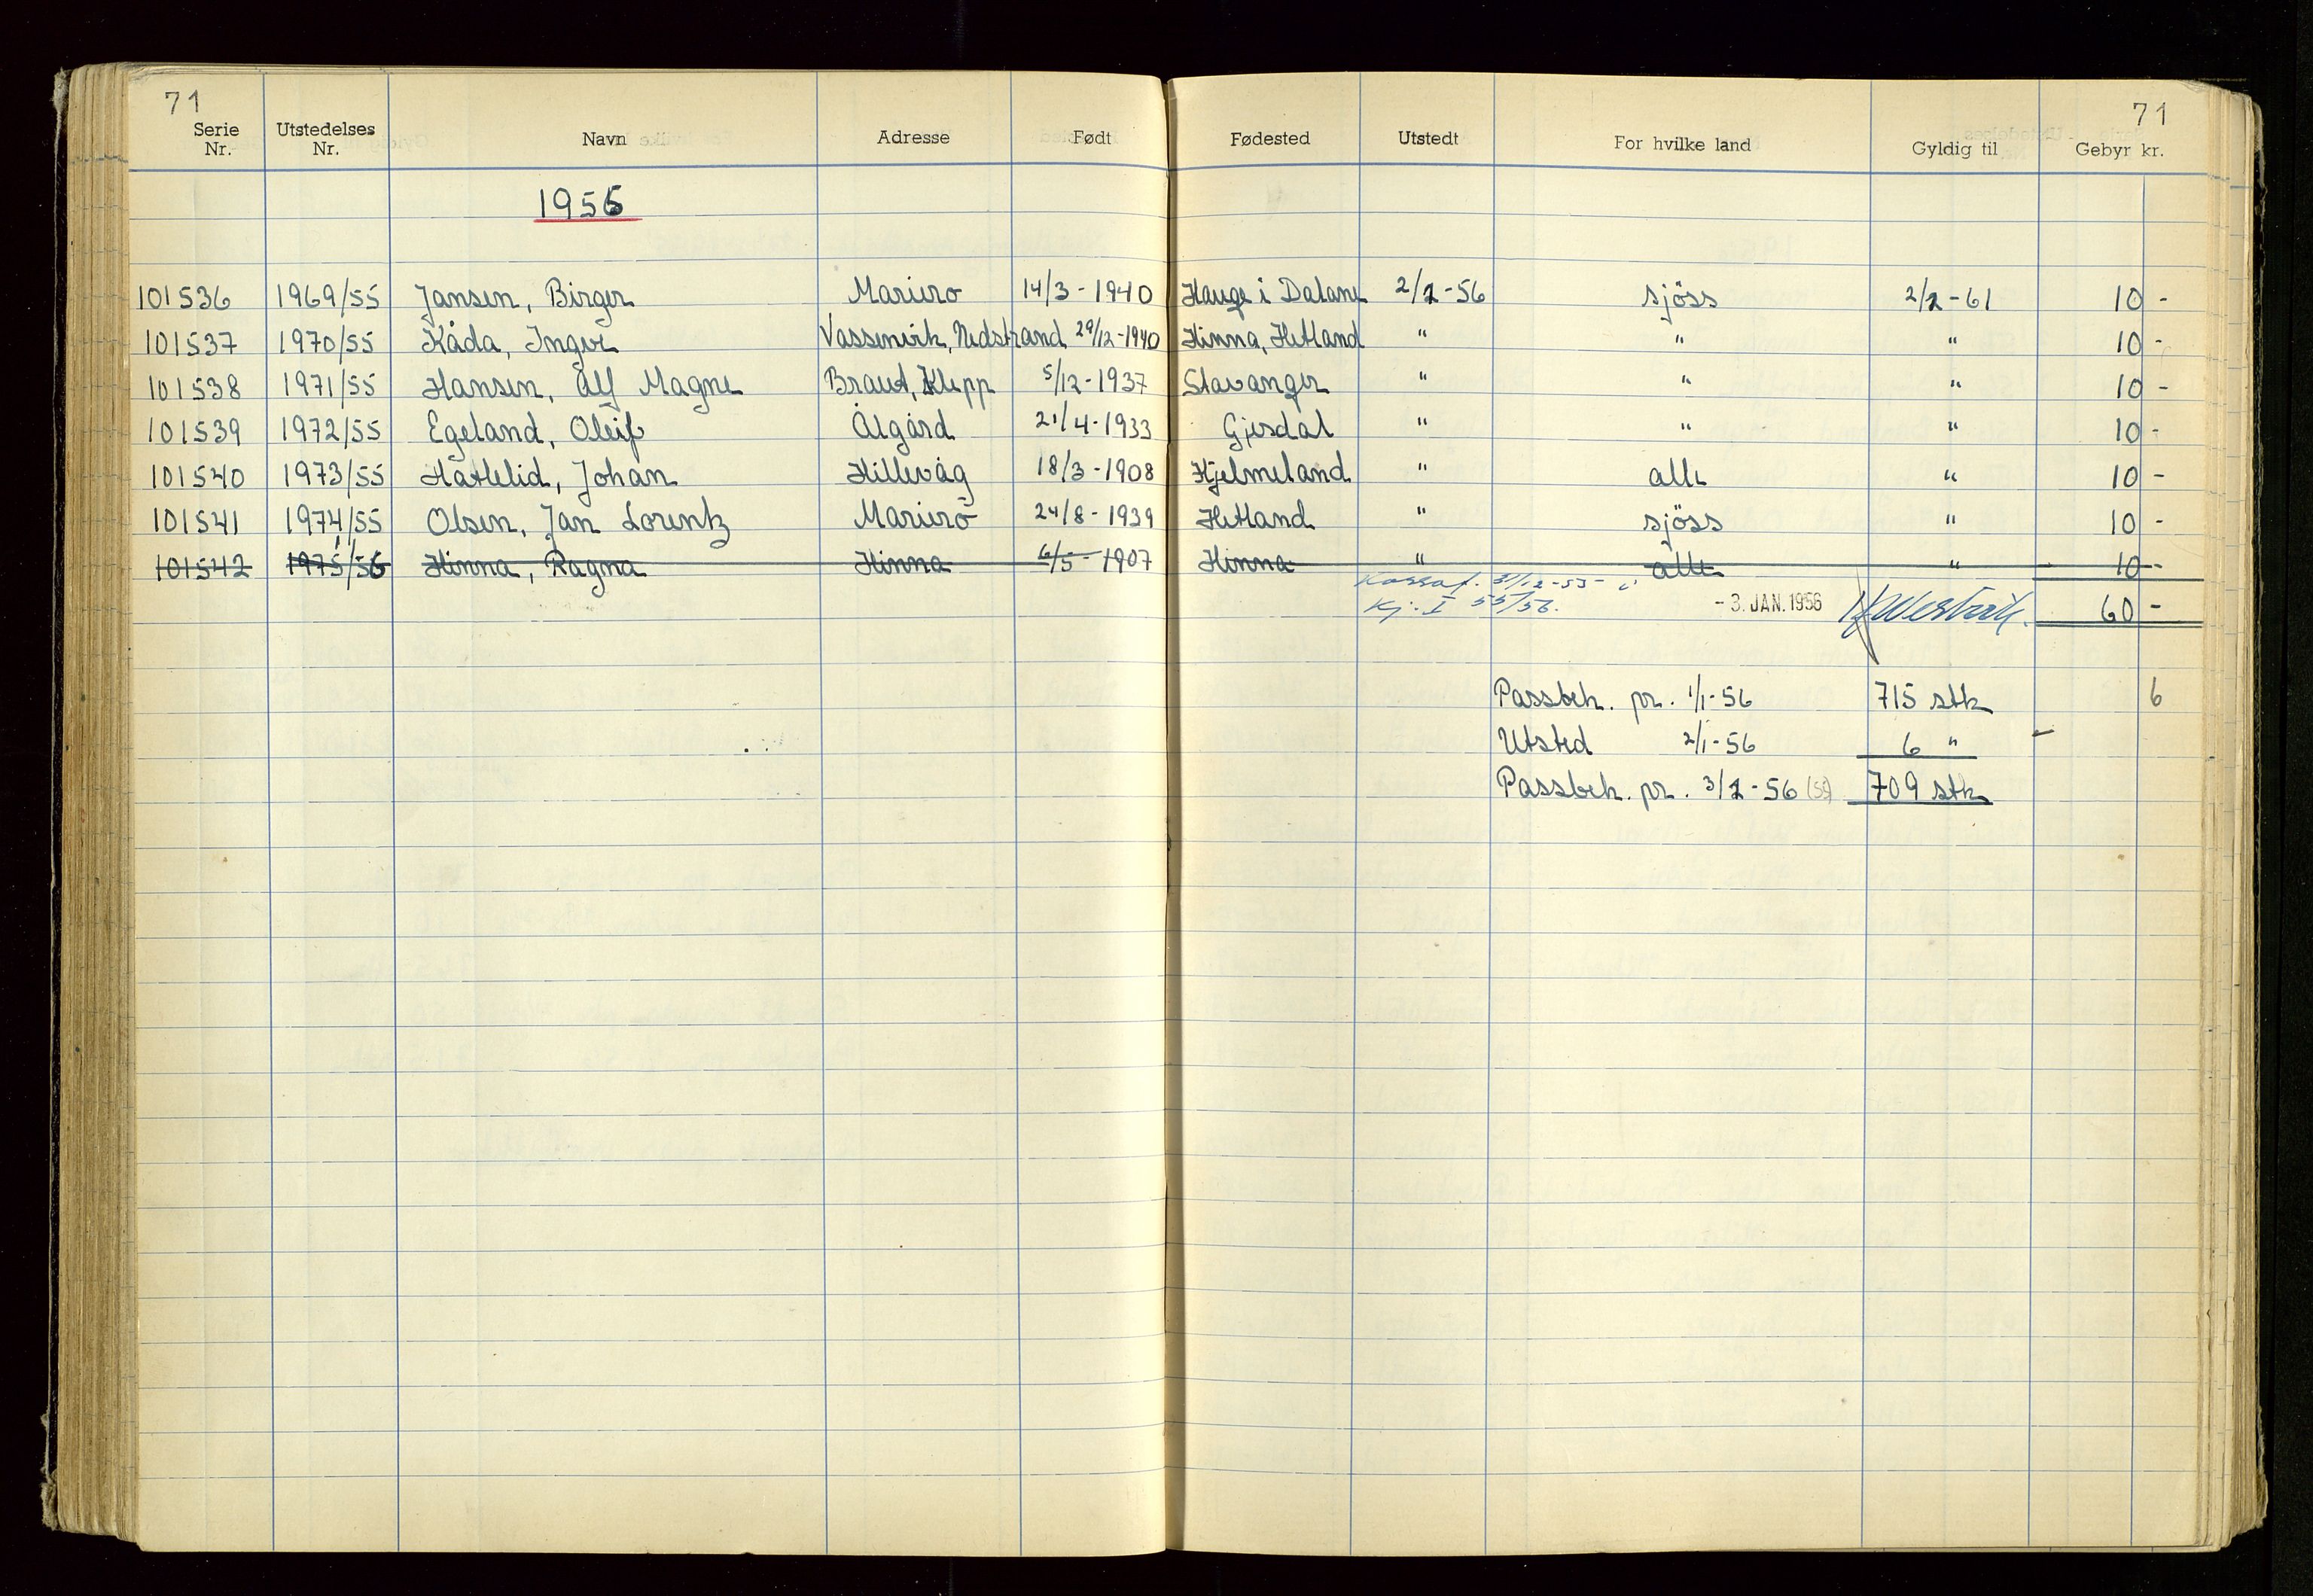 71 71
Serie Nr. Utstedelses Nr. Navn Adresse Født Fødested Utstedt For hvilke land Gyldig til Gebyr kr.
1956
101536 1969/55 Jansen, Birger Mariero 14/3-1940 Hauge i Dalane 2/1-56 sjöss 2/1-61 10 -
101537 1970/55 Kåda, Inger Vassenvik, Nedstrand 29/12-1940 Hinna, Hetland " " " 10 -
101538 1971/55 Hansen, Alf Magne Braut, Klepp 5/12-1937 Stavanger " " " 10 -
101539 1972/55 Egeland, Oleif Ålgård 21/4-1933 Gjesdal " " " 10 -
101540 1973/55 Hatlelid, Johan Hillevåg 18/3-1908 Hjelmeland " alle " 10 -
101541 1974/55 Olsen, Jan Lorentz Marierö 24/8-1939 Hetland " sjöss " 10 -
101542 1975/56 Hinna, Ragna Hinna 6/5-1907 Hinna " alle " 10 -
Kassaf. 31/12-55-
Kj. I 55/56. - 3. JAN. 1956 60 -
Passbeh. pr. 1/1-56 715 stk 6
Utsted 2/1-56 6 " -
Passbeh. pr. 3/1-56 (55) 709 stk